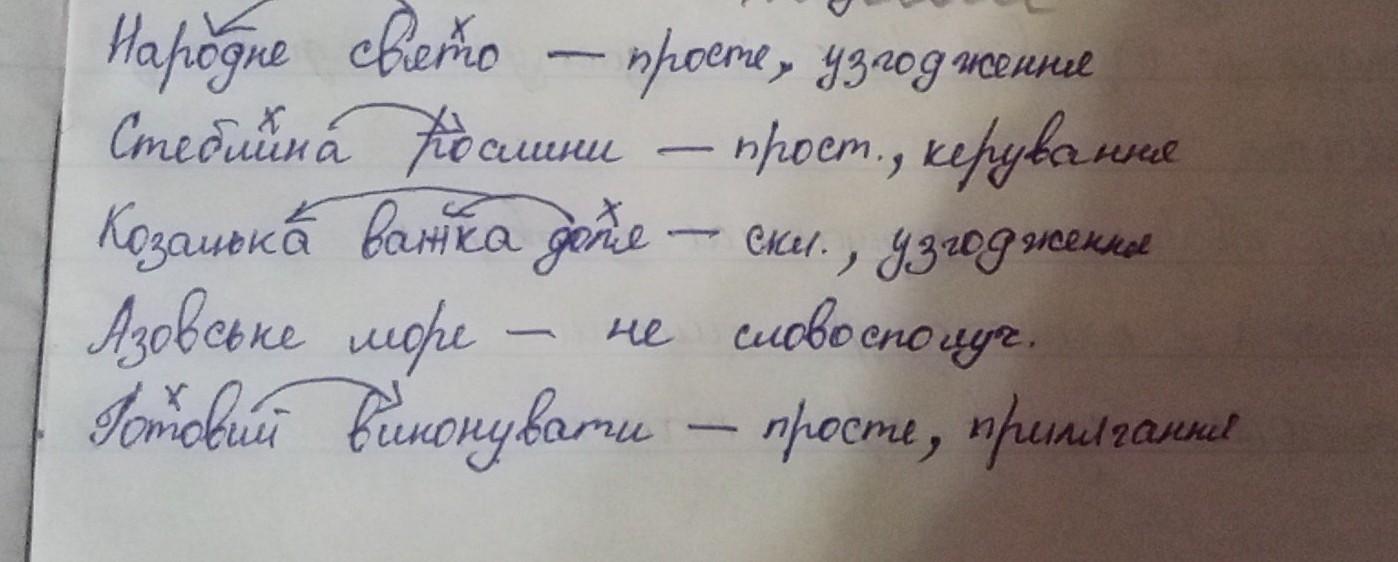 Народне свято — просте, узгодження
Стеблина рослини — прост., керування
Козацька важка доля — скл., узгодження
Азовське море — не словосполуч.
Готовий виконувати — просте, прилягання